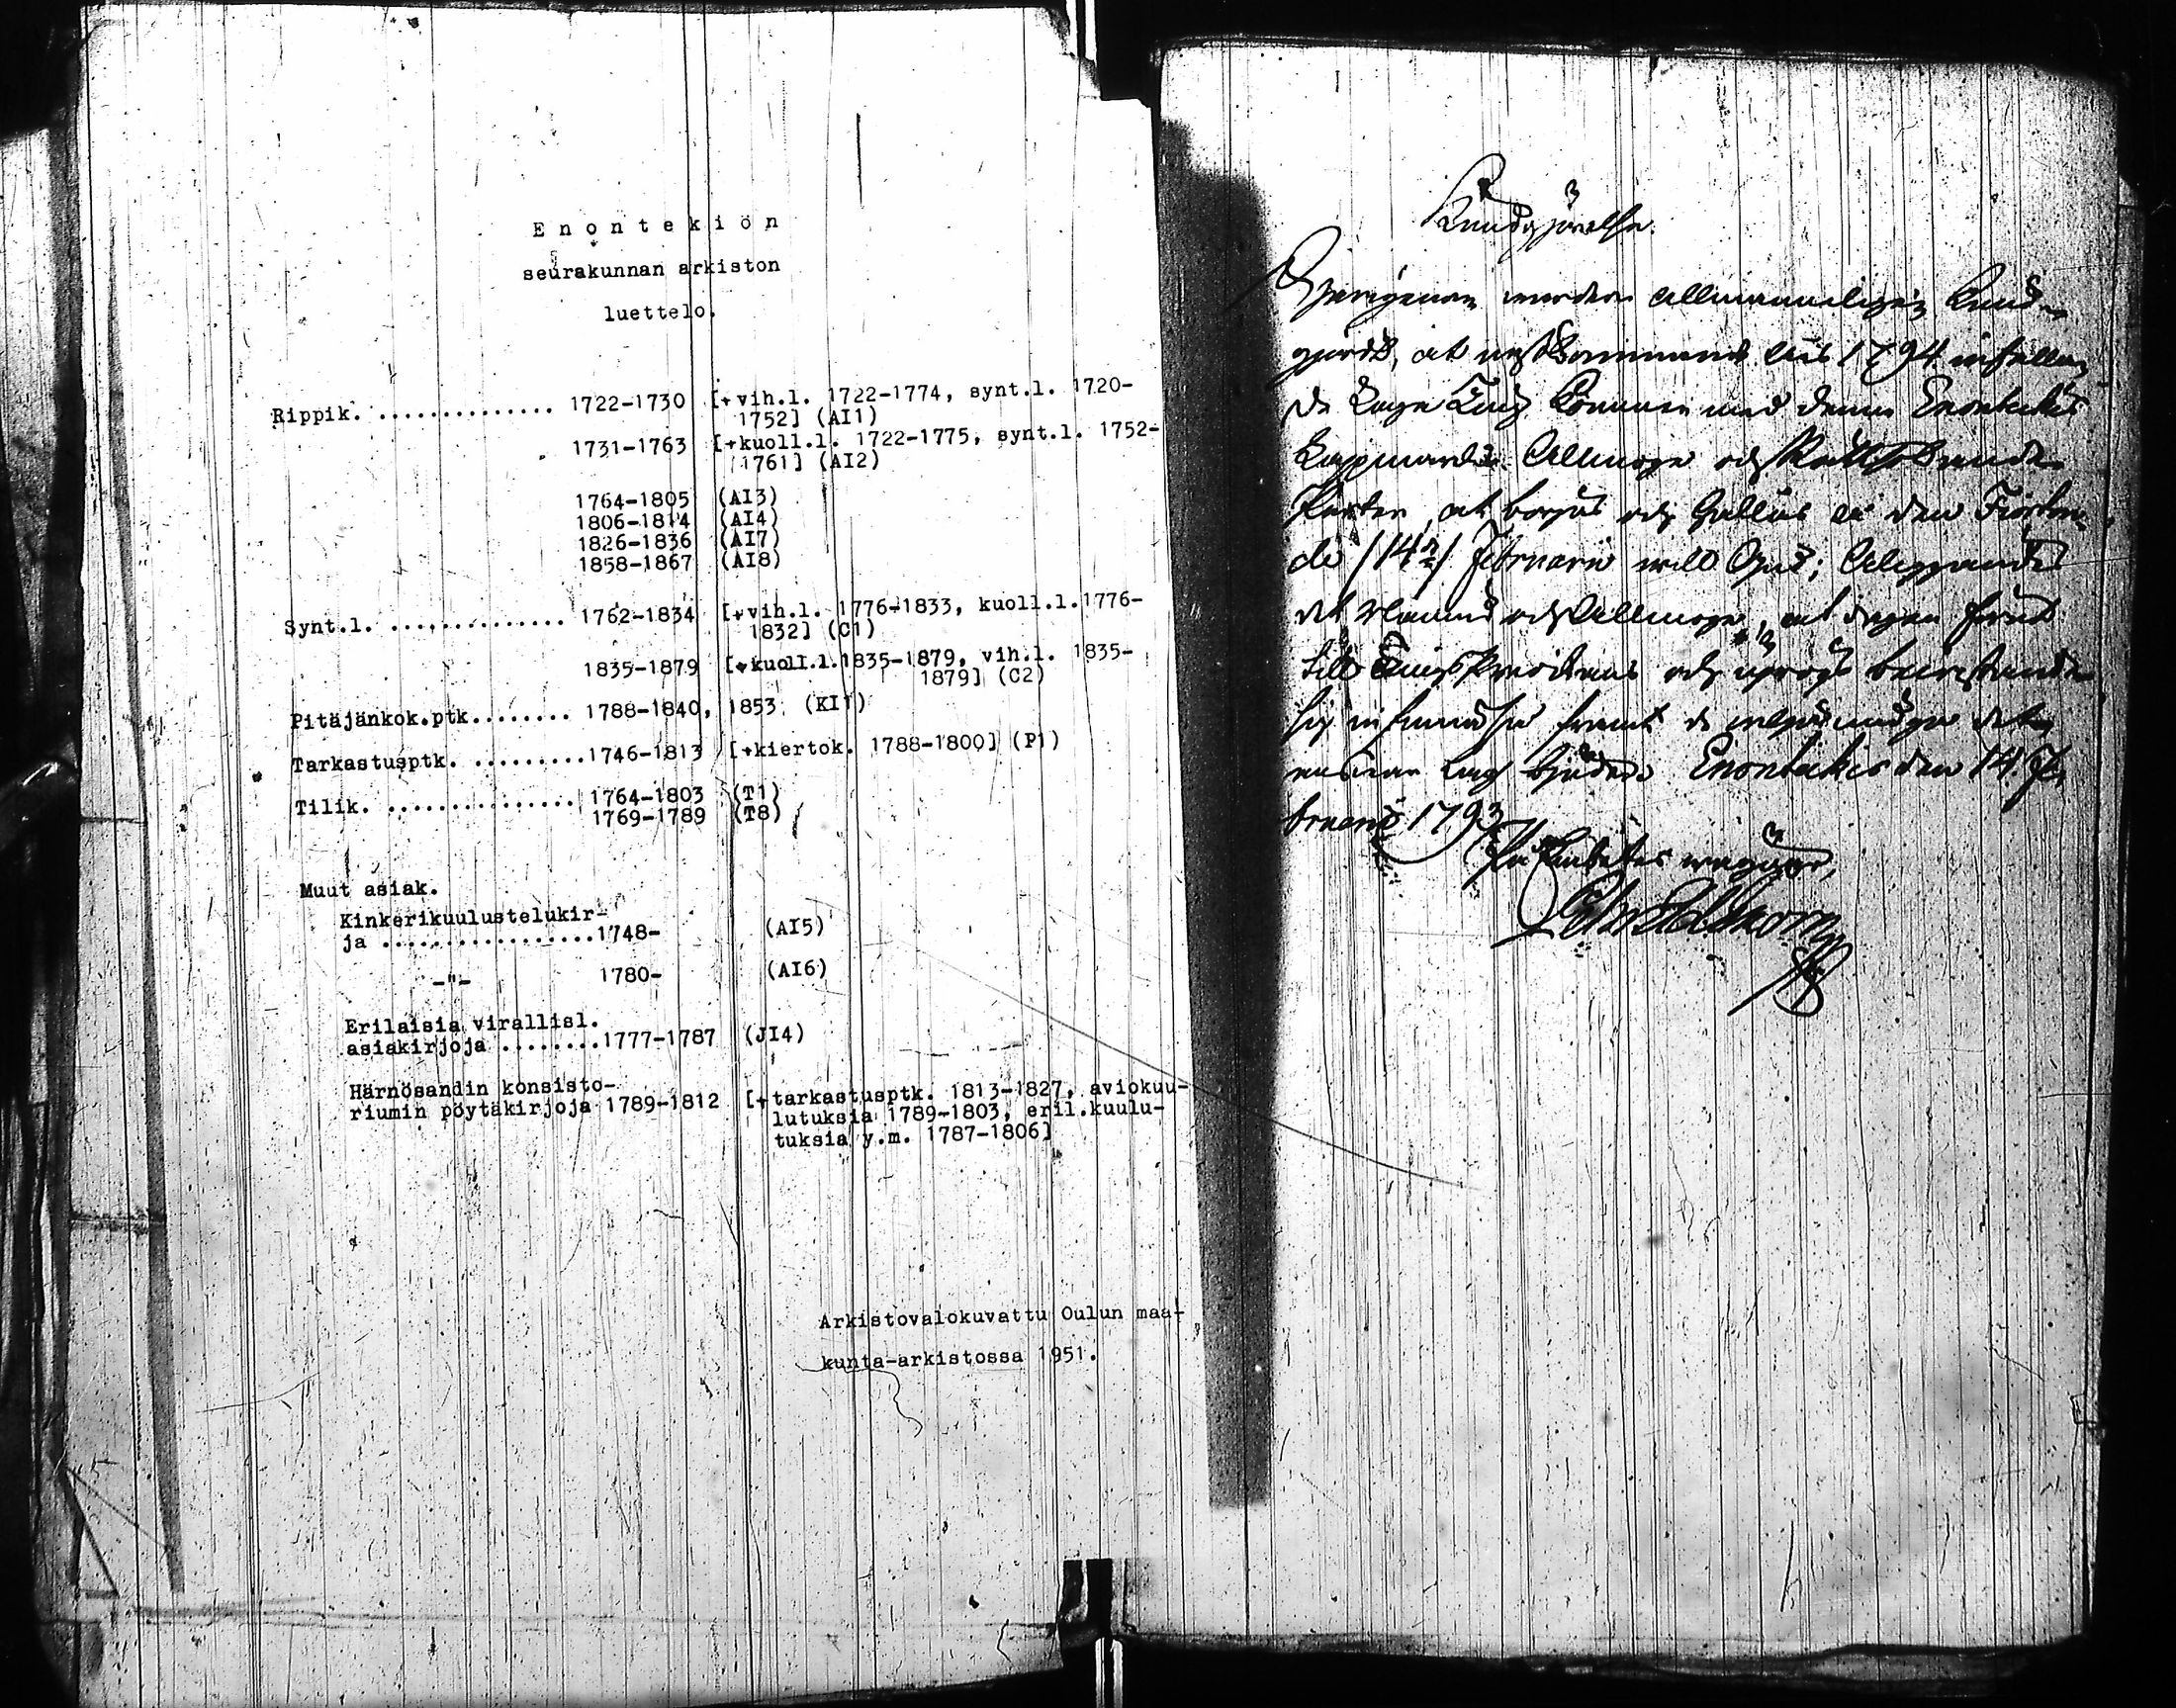 Enontekiön
seurakunnan arkiston
luettelo.
Rippik. .............. 1722-1730 [+vih.l. 1722-1774, synt.l. 1720-
1752] (AI1)
1731-1763 [+kuoll.l. 1722-1775, synt.l. 1752-
1761] (AI2)
1764-1805 (AI3)
1806-1814 (AI4)
1826-1836 (AI7)
1858-1867 (AI8)
Synt.l. .............. 1762-1834 [+vih.l. 1776-1833, kuoll.l.1776-
1832] (C1)
1835-1879 [+kuoll.l.1835-1879, vih.l. 1835-
1879] (C2)
Pitäjänkok.ptk........ 1788-1840, 1853 (KI1)
Tarkastusptk. .........1746-1813 [+kiertok. 1788-1800] (P1)
Tilik. ............... 1764-1803 (T1)
1769-1789 (T8)
Muut asiak.
Kinkerikuulustelukir-
ja .................1748- (AI5)
-"- 1780- (AI6)
Erilaisia virallisl.
asiakirjoja ........1777-1787 (JI4)
Härnösandin konsisto-
riumin pöytäkirjoja 1789-1812 [+tarkastusptk. 1813-1827, aviokuu-
lutuksia 1789-1803, eril.kuulu-
tuksia y.m. 1787-1806]
Arkistovalokuvattu Oulun maa-
kunta-arkistossa 1951.
Kundgjörelse.
Härigenom warder allmänneligen kund-
gjordt, at nästkommande års 1794 infallan
de Laga Ting kommer med denna Enontekis
Lappmarks Allmoge och Rättssökande
Parter, at börjas och hållas å den Fiorton
de /14de/ Februarii
Nämnd och Allmoge, at dagen förut
till Tings
sig infinna
Laga Enontekis den 14. Fe
bruarii 1793
På Embetes wägnar,